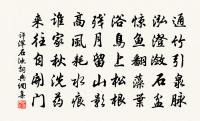 通竹引泉脉
泓澄潋石盆
惊鱼翻藻葉
浴鸟上松根
残月留山影
高风耗水痕
谁家秋洗药
来往自开门
许浑石池词典網书